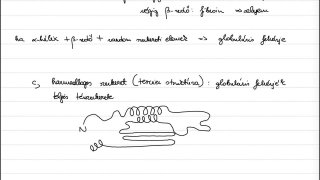 végig β-redő: fibroin → selyem
ha α-hélix + β-redő + random szerkezet elemek => globuláris fehérje
c, harmadlagos szerkezet (tercier struktúra): globuláris fehérjék
teljes térszerkezete
N